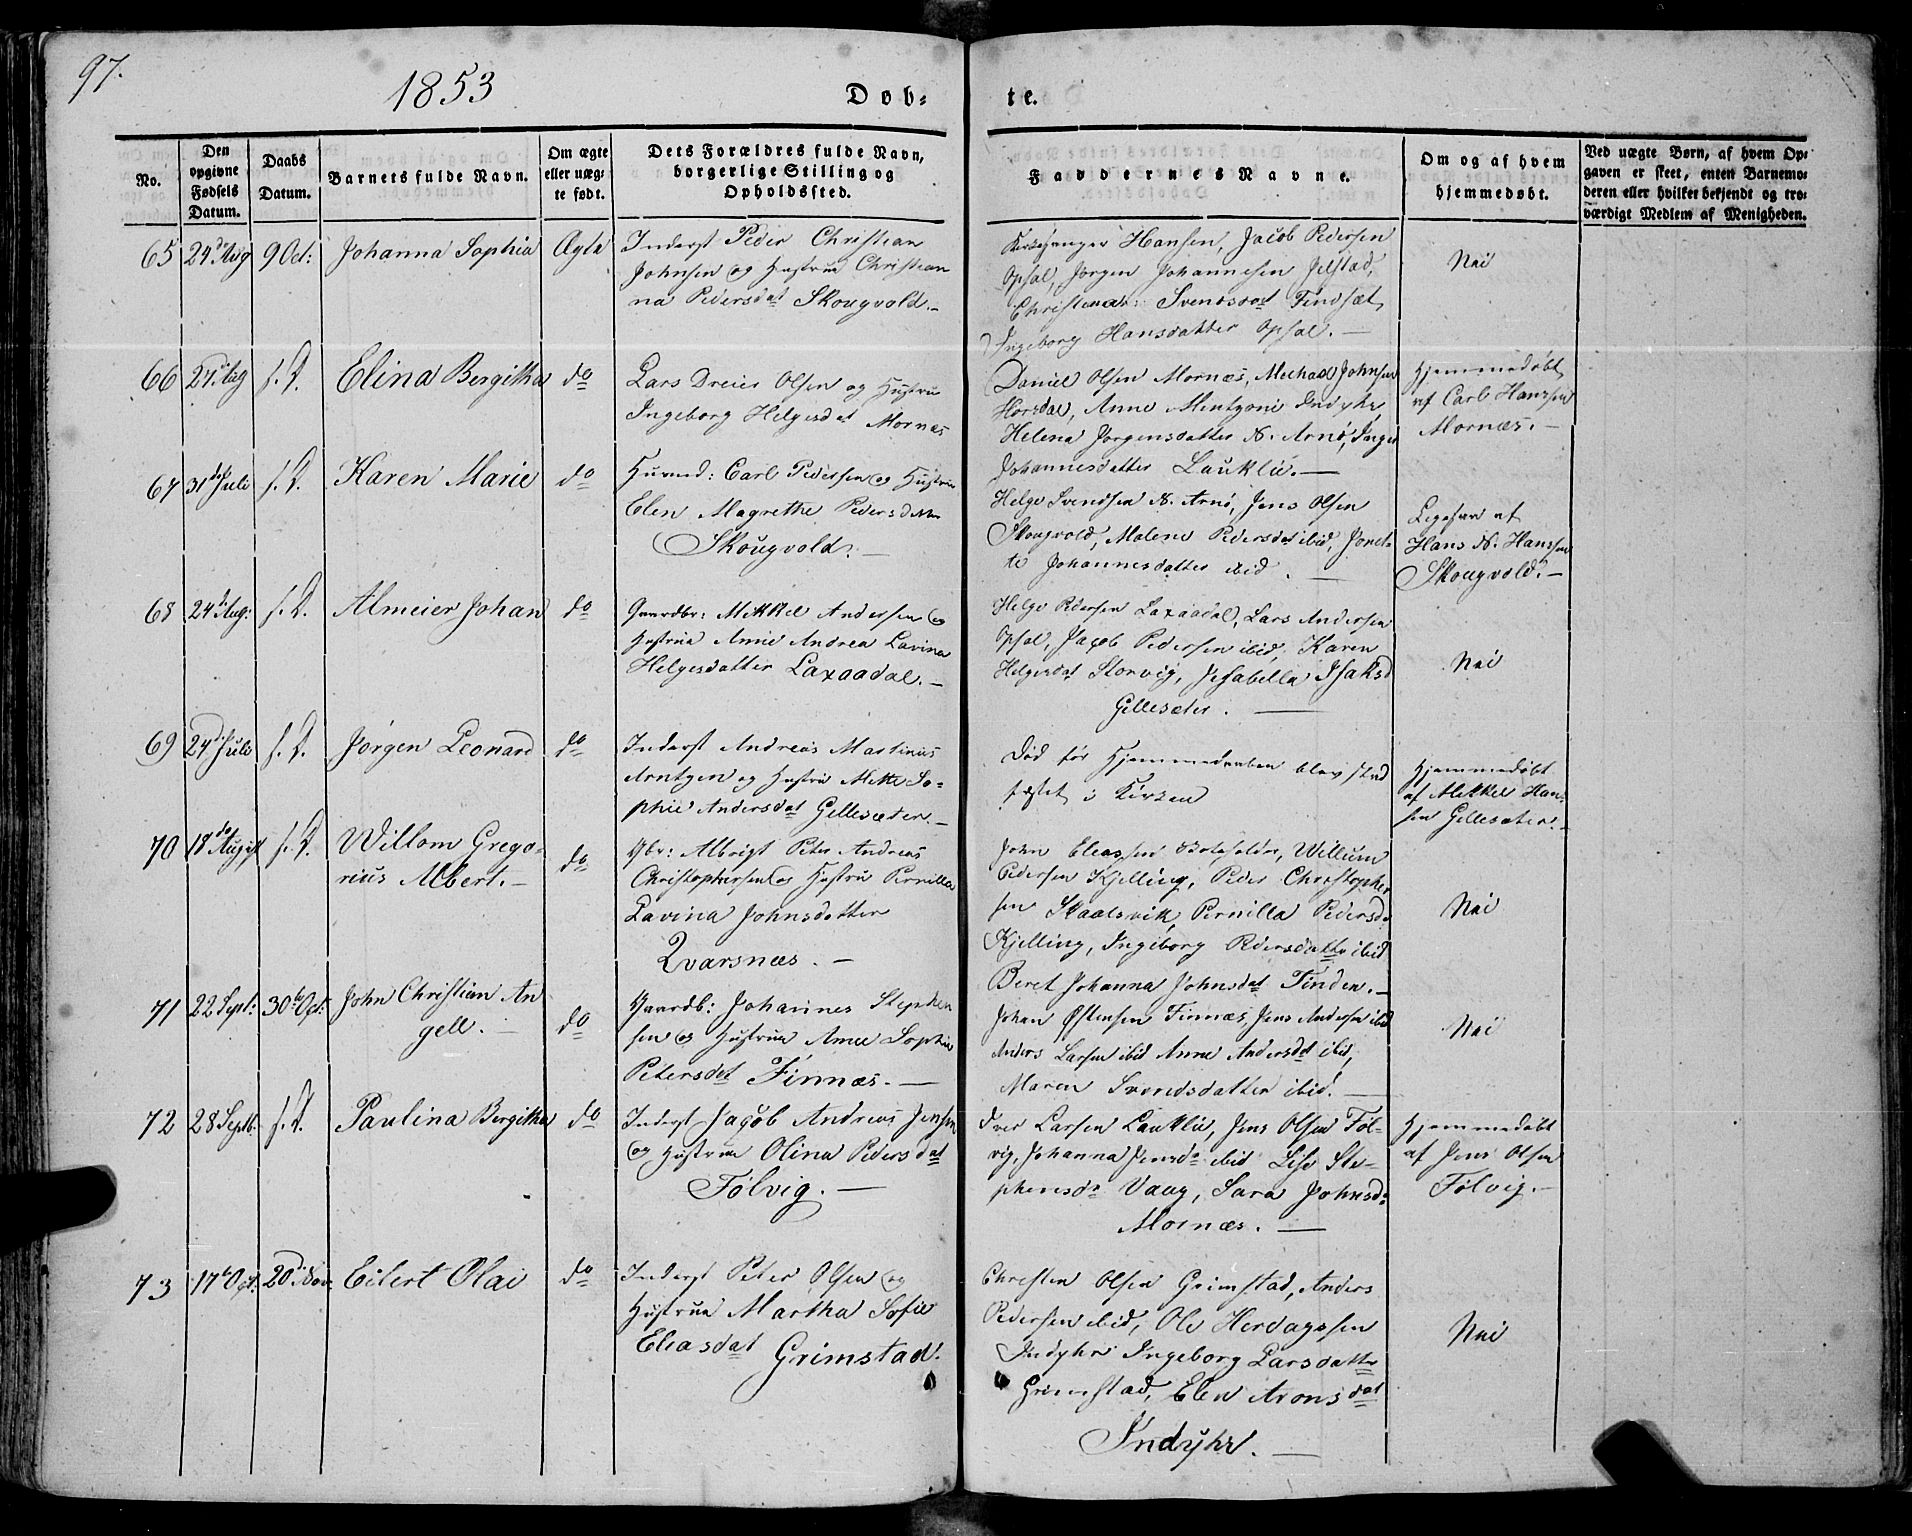 97.
1853
Døb-
te.
No.
Den
opgivne
Fødsels
Datum.
Daabs
Datum.
Barnets fulde Navn.
Om ægte
eller uæg-
te født.
Dets Forældres fulde Navn,
borgerlige Stilling og
Opholdsfted.
Faddernes Navne.
Om og af hvem
hjemmedøbt.
Ved uægte Børn, af hvem Op-
gaven er skeet, enten Barnemo-
deren eller hvilket bekjendt og tro-
værdigt Medlem af Menigheden.
65 24de Aug 9 Oct: Johanna Sophia Ægte
Inderst Peder Christian
Johnsen og Hustrue Christian
na Pedersdat Skougvold.-
Kirkesanger Hansen, Jacob Pedersen
Opsal, Jørgen Johannesen Jilstad,
Christina Svendsdat Findsæt,
Ingeborg Hansdatter Opsal.-
Nei
66 27de Aug s. D. Elina Bergitha do
Lars Dreier Olsen og Hustrue
Ingeborg Helgesdat Mornæs
Daniel Olsen Mornæs, Michael Johnsen
Horsdal, Anne Mentzoni Indyhr,
Helena Jørgensdatter N. Arnø, Inger
Johannesdatter Lauklie.-
Hjemmedøbt
af Carl Hanssen
Mornæs.-
67 31de Juli s. D. Karen Marie do
Huusmd: Carl Pedersen og Hustrue
Elen Magrethe Pedersdatter
Skougvold.-
Helge Svendsen N. Arnø, Jens Olsen
Skougvold, Malene Pedersdat ibid, Jonet-
te Johannesdatter ibid.-
Ligesaa af
Hans N. Hanssen
Skougvold.-
68 24de Aug: s. D. Almeier Johan do
Gaardbr: Mikkel Andersen og
Hustrue Anne Andrea Lavina
Helgesdatter Laxaadal.-
Helge Pedersen Laxaadal, Lars Andersen
Opsal, Jacob Pedersen ibid, Karen
Helgesdat Storvig, Jesabella Isaksd
Gillesæter.-
Nei
69 24de Juli s. D. Jørgen Leonard do
Inderst Andreas Martinus
Arntzen og Hustrue Mette So-
phie Andersdat Gillesæter.-
Død før Hjemmedaaben blev stad
fæstet i Kirken
Hjemmedøbt
af Mikkel Han-
sen Gillesæter.-
70 18de August s. D. Willom Grego-
rius Albert.- do
Gbr: Albrigt Peter Andreas
Christophersen og Hustrue Pernilla
Lavina Johnsdatter
Qvarsnæs.-
John Eliassen, Willum
Pedersen Kjelling, Peder Christopher
sen Skaalsvik, Pernilla Pedersd.
Kjelling, Ingeborg Pedersdatter ibid
Beret Johanna Johnsdat Finden.-
Nei
71 22 Sept: 30te Oct: John Christian An
gell.- do
Gaardb: Johannes Stephen
sen og Hustrue Anne Sophie
Petersdat Finnæs.-
Johan Østensen Finnæs, Jens Andersen ibid
Anders Larsen ibid Anne Andersdat ibid,
Maren Svendsdatter ibid.-
Nei
72 28 Septb: s. D. Paulina Bergitha do
Inderst Jacob Andreas Jensen
og Hustrue Olina Pedersdat
Følvig.-
Iver Larsen Lauklie, Jens Olsen Føl-
vig, Johanna Jensdr ibid Lise Ste-
phensdr Vaag, Sara Johnsdr
Mornæs.-
Hjemmedøbt
af Jens Olsen
Følvig.-
73 17te Oct: 20de Nov: Eilert Olai do
Inderst Peter Olsen og
Hustrue Martha Sofie
Eliasdat Grimstad.
Christen Olsen Grimstad, Anders
Pedersen ibid, Ole Herdagssen
Indyhr Ingeborg Larsdatter
Grimstad, Elen Aronsdat
Indyhr.-
Nei